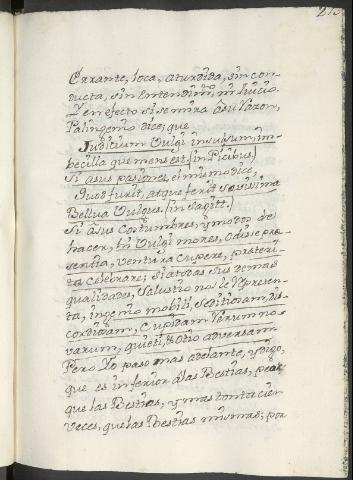 213
Errante, loca, aturdida, sin con-
ducta, sin entendim.to, ni Juicio.
Y en efecto si se mira a su razon,
Palingenio dice, que
Judicium Vulgi insulsum, im-
becilla que mens est. (in Picibus)
Si a sus pasiones, el mismo dice
Quod furit, atque ferit sævissima
Bellua Vulgus. (in Sagitt.)
Si a sus Costumbres, y modos de
hacer, in Vulgi mores, Odisse præ-
sentia, ventura cupere, præteri-
ta celebrare; Si a todas sus demas
qualidades, Salustio no le represen-
ta, ingenio mobili, Seditiosam, dis-
cordiosam, Cupidam rerum no-
varum, quieti, & Otio adversam.
Pero Yo paso mas adelante, y digo,
que es inferior a las Bestias, peor
que las Bestias, y mas tonta cien
veces, que las Bestias mismas; por